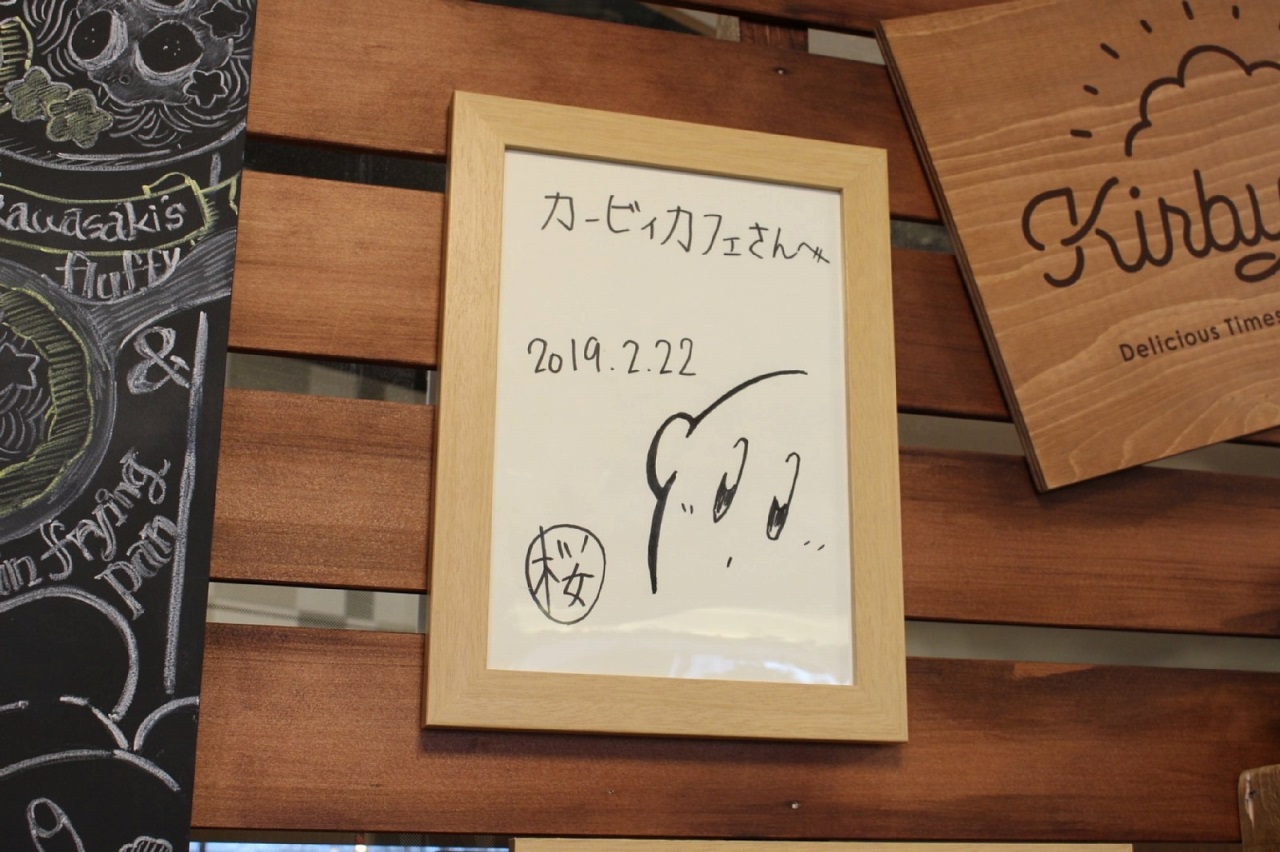 Kawasaki's
fluffy
&
in frying
pan
カービィカフェさんへ
2019.2.22
桜
Kirby
Delicious Times